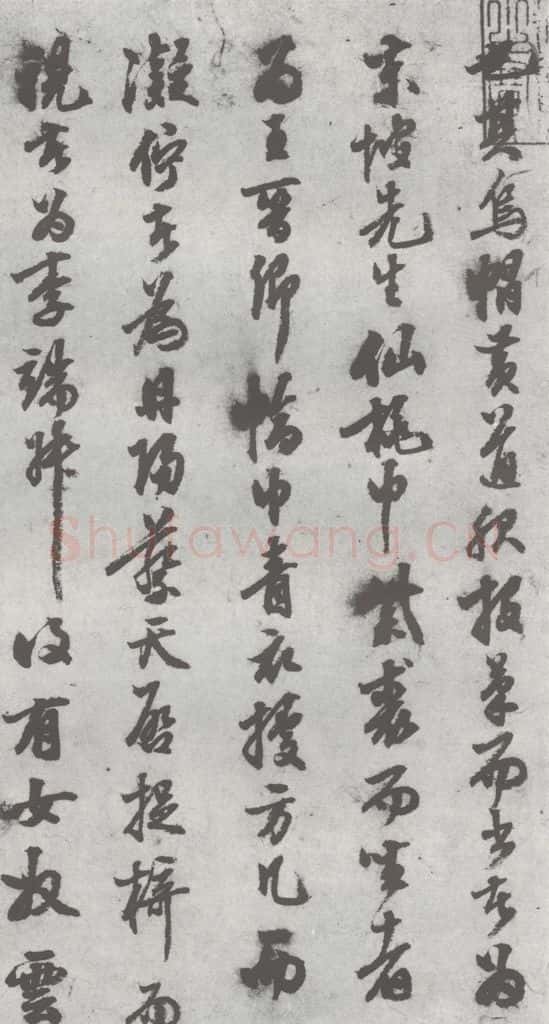 也其烏帽黃道服捉筆而書者為
東坡先生仙桃巾紫裘而坐者
為王晉卿幅巾青衣據方几而
凝佇者為丹陽蔡天啟捉椅而
視者為李端叔後有女奴雲
Shufawang.CN